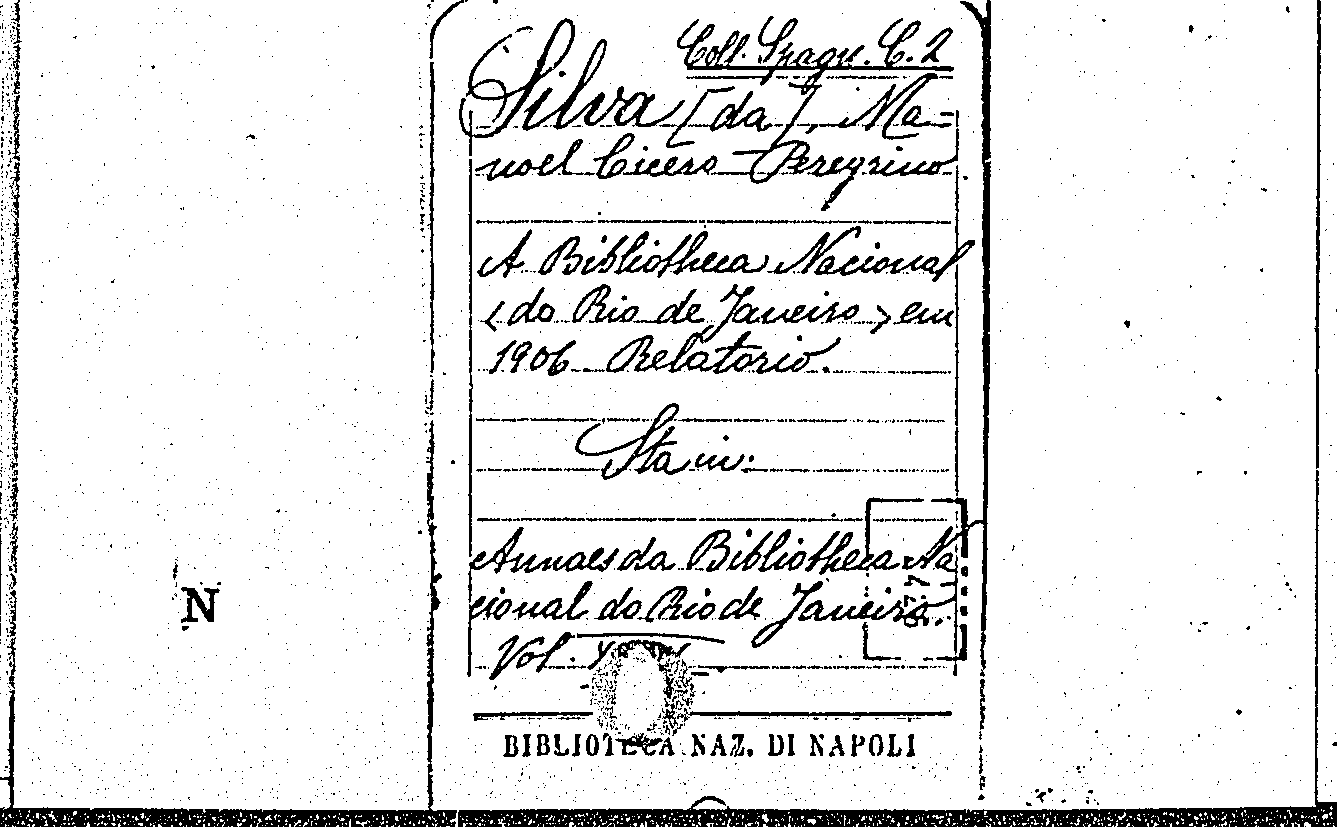 Coll. Spagn. C. 2
Silva [da], Ma=
noel Cicero Peregrino
A Bibliotheca Nacional
<do Rio de Janeiro> em
1906. Relatorio.
Sta in:
Annaes da Bibliotheca Na
cional do Rio de Janeiro.
Vol.
N
BIBLIOTECA NAZ. DI NAPOLI